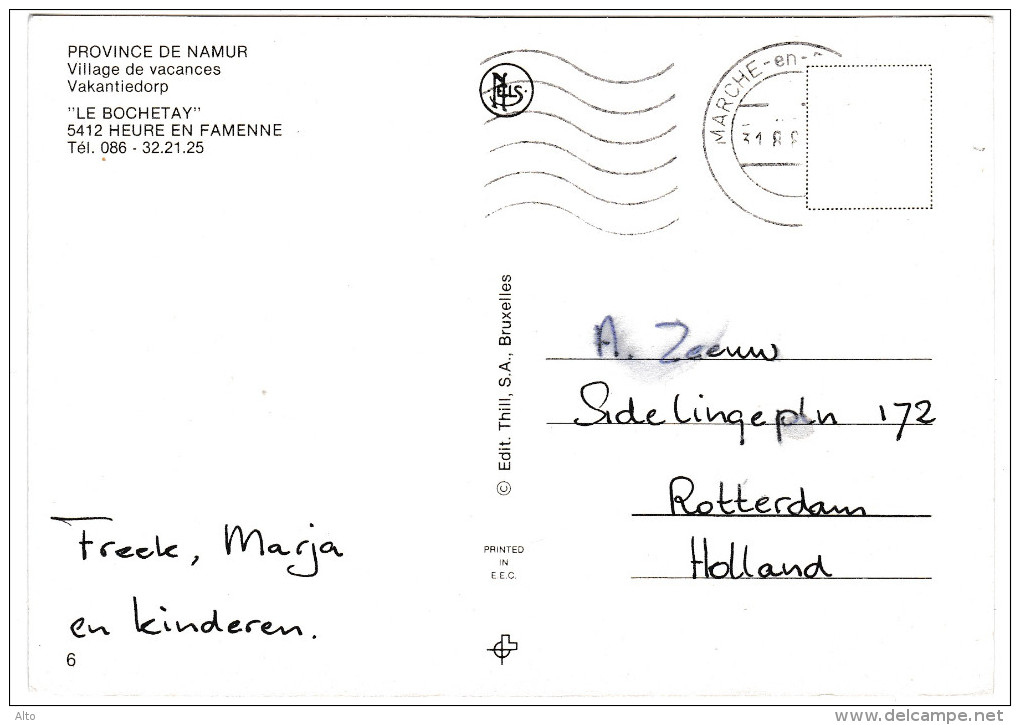 PROVINCE DE NAMUR
Village de vacances
Vakantiedorp
"LE BOCHETAY"
5412 HEURE EN FAMENNE
Tél. 086 - 32.21.25
NELS
MARCHE-en-
31
© Edit. Thill, S.A., Bruxelles
A. Zeeuw
Sidelingepln 172
Rotterdam
Holland
Freek, Marja
en kinderen.
PRINTED
IN
E.E.C.
6
Alto
delcampe.net